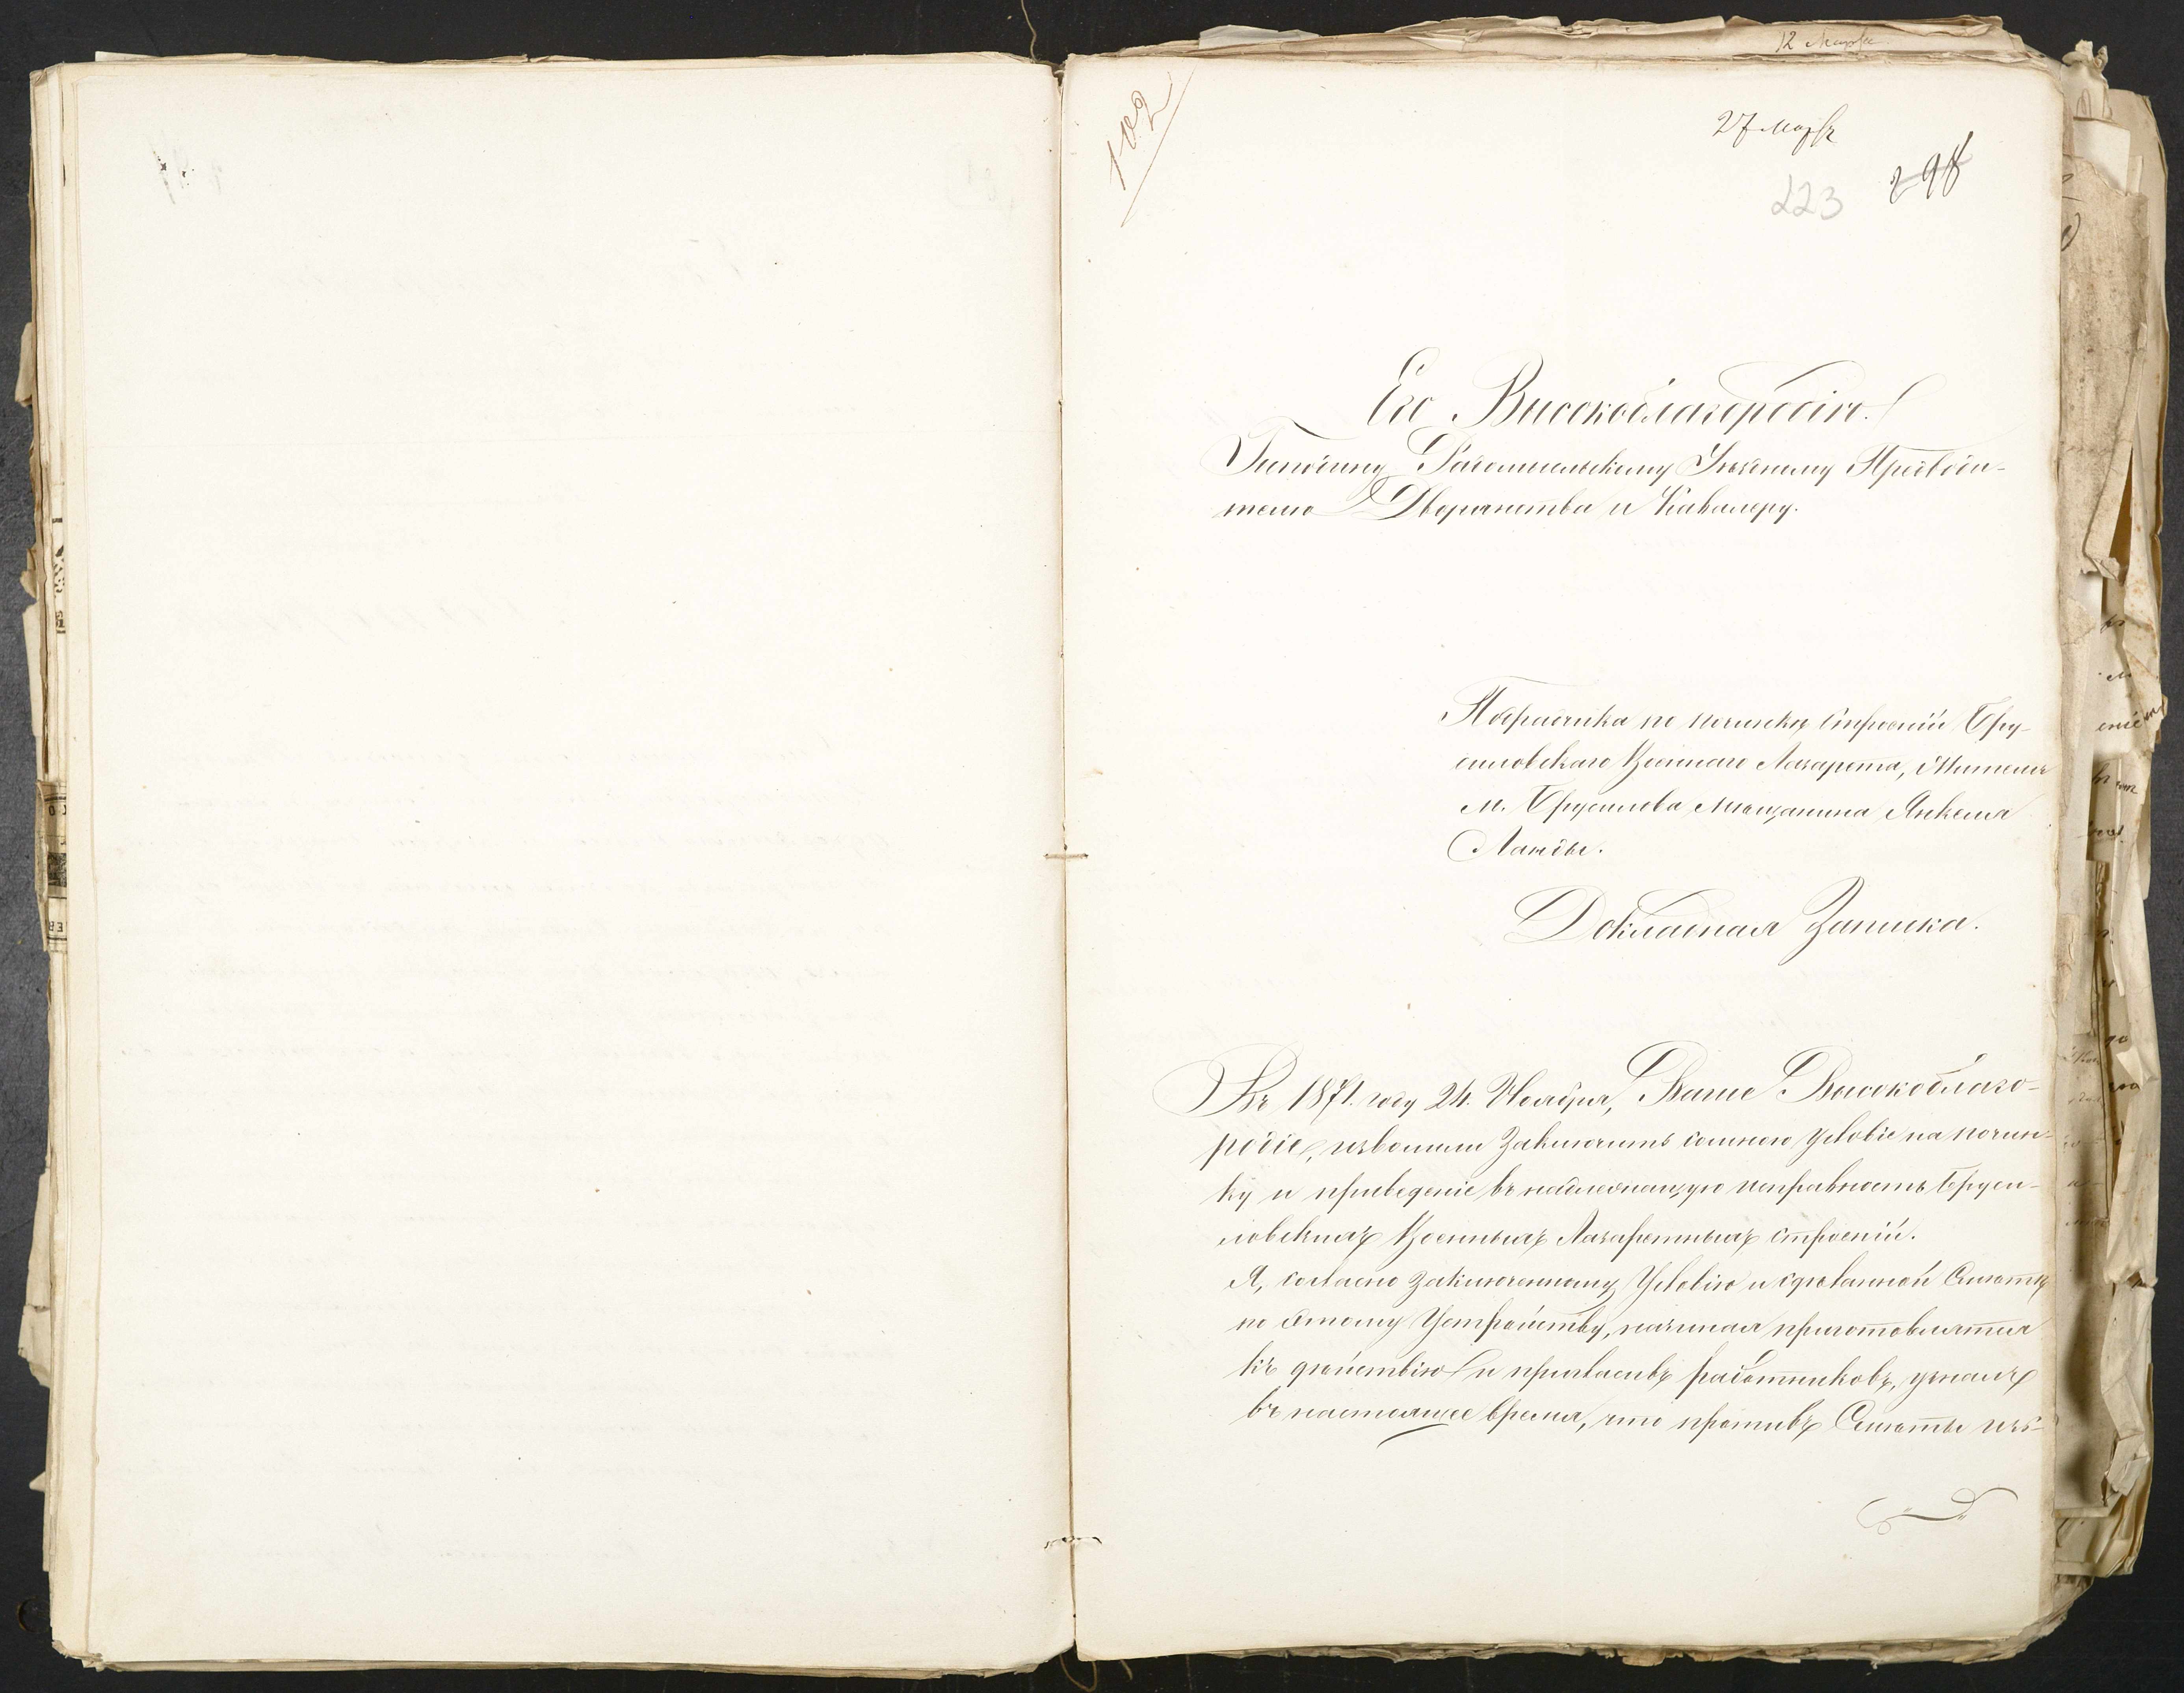 12 Марта
102
27 Марта
298
223
Его Высокоблагородію.
Господину Радомысльскому Уѣздному Предводи-
телю Дворянства и Кавалеру.
Подрядчика по починкѣ строеній Бру-
силовскаго Военнаго Лазарета, Жителя
м. Брусилова мѣщанина Янкеля
Ланды.
Докладная Записка.
Въ 1871. году 24. Ноября, Ваше Высокоблаго-
родіе, изволили заключить со мною условіе на почин-
ку и приведеніе въ надлежащую исправность Бруси-
ловскихъ Военныхъ Лазаретныхъ строеній.
Я, согласно заключенному Условію и
по этому Устройству, начиная приготовлятся
къ дѣйствію и пригласивъ работниковъ, узналъ
въ настоящее время, что противъ Смѣты из-